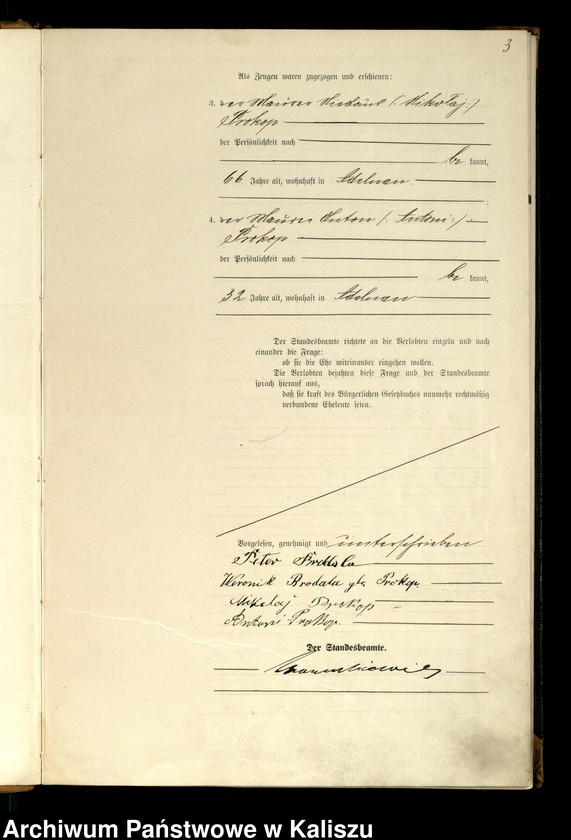 3
Als Zeugen waren zugezogen und erschienen:
3. der Maurer Nicolaus (Mikołaj:)
Prokop
der Persönlichkeit nach
be kannt,
66 Jahre alt, wohnhaft in Adelnau.
4. der Maurer Anton (Antoni:)
Prokop
der Persönlichkeit nach
be kannt,
32 Jahre alt, wohnhaft in Adelnau
Der Standesbeamte richtete an die Verlobten einzeln und nach
einander die Frage:
ob sie die Ehe miteinander eingehen wollen.
Die Verlobten bejahten diese Frage und der Standesbeamte
sprach hierauf aus,
daß sie kraft des Bürgerlichen Gesetzbuches nunmehr rechtmäßig
verbundene Eheleute seien.
Vorgelesen, genehmigt und unterschrieben
Peter
Weronik Brodala gb. Prokop.
Mikolaj Prokop
Antoni Prokop.
Der Standesbeamte.
Archiwum Państwowe w Kaliszu